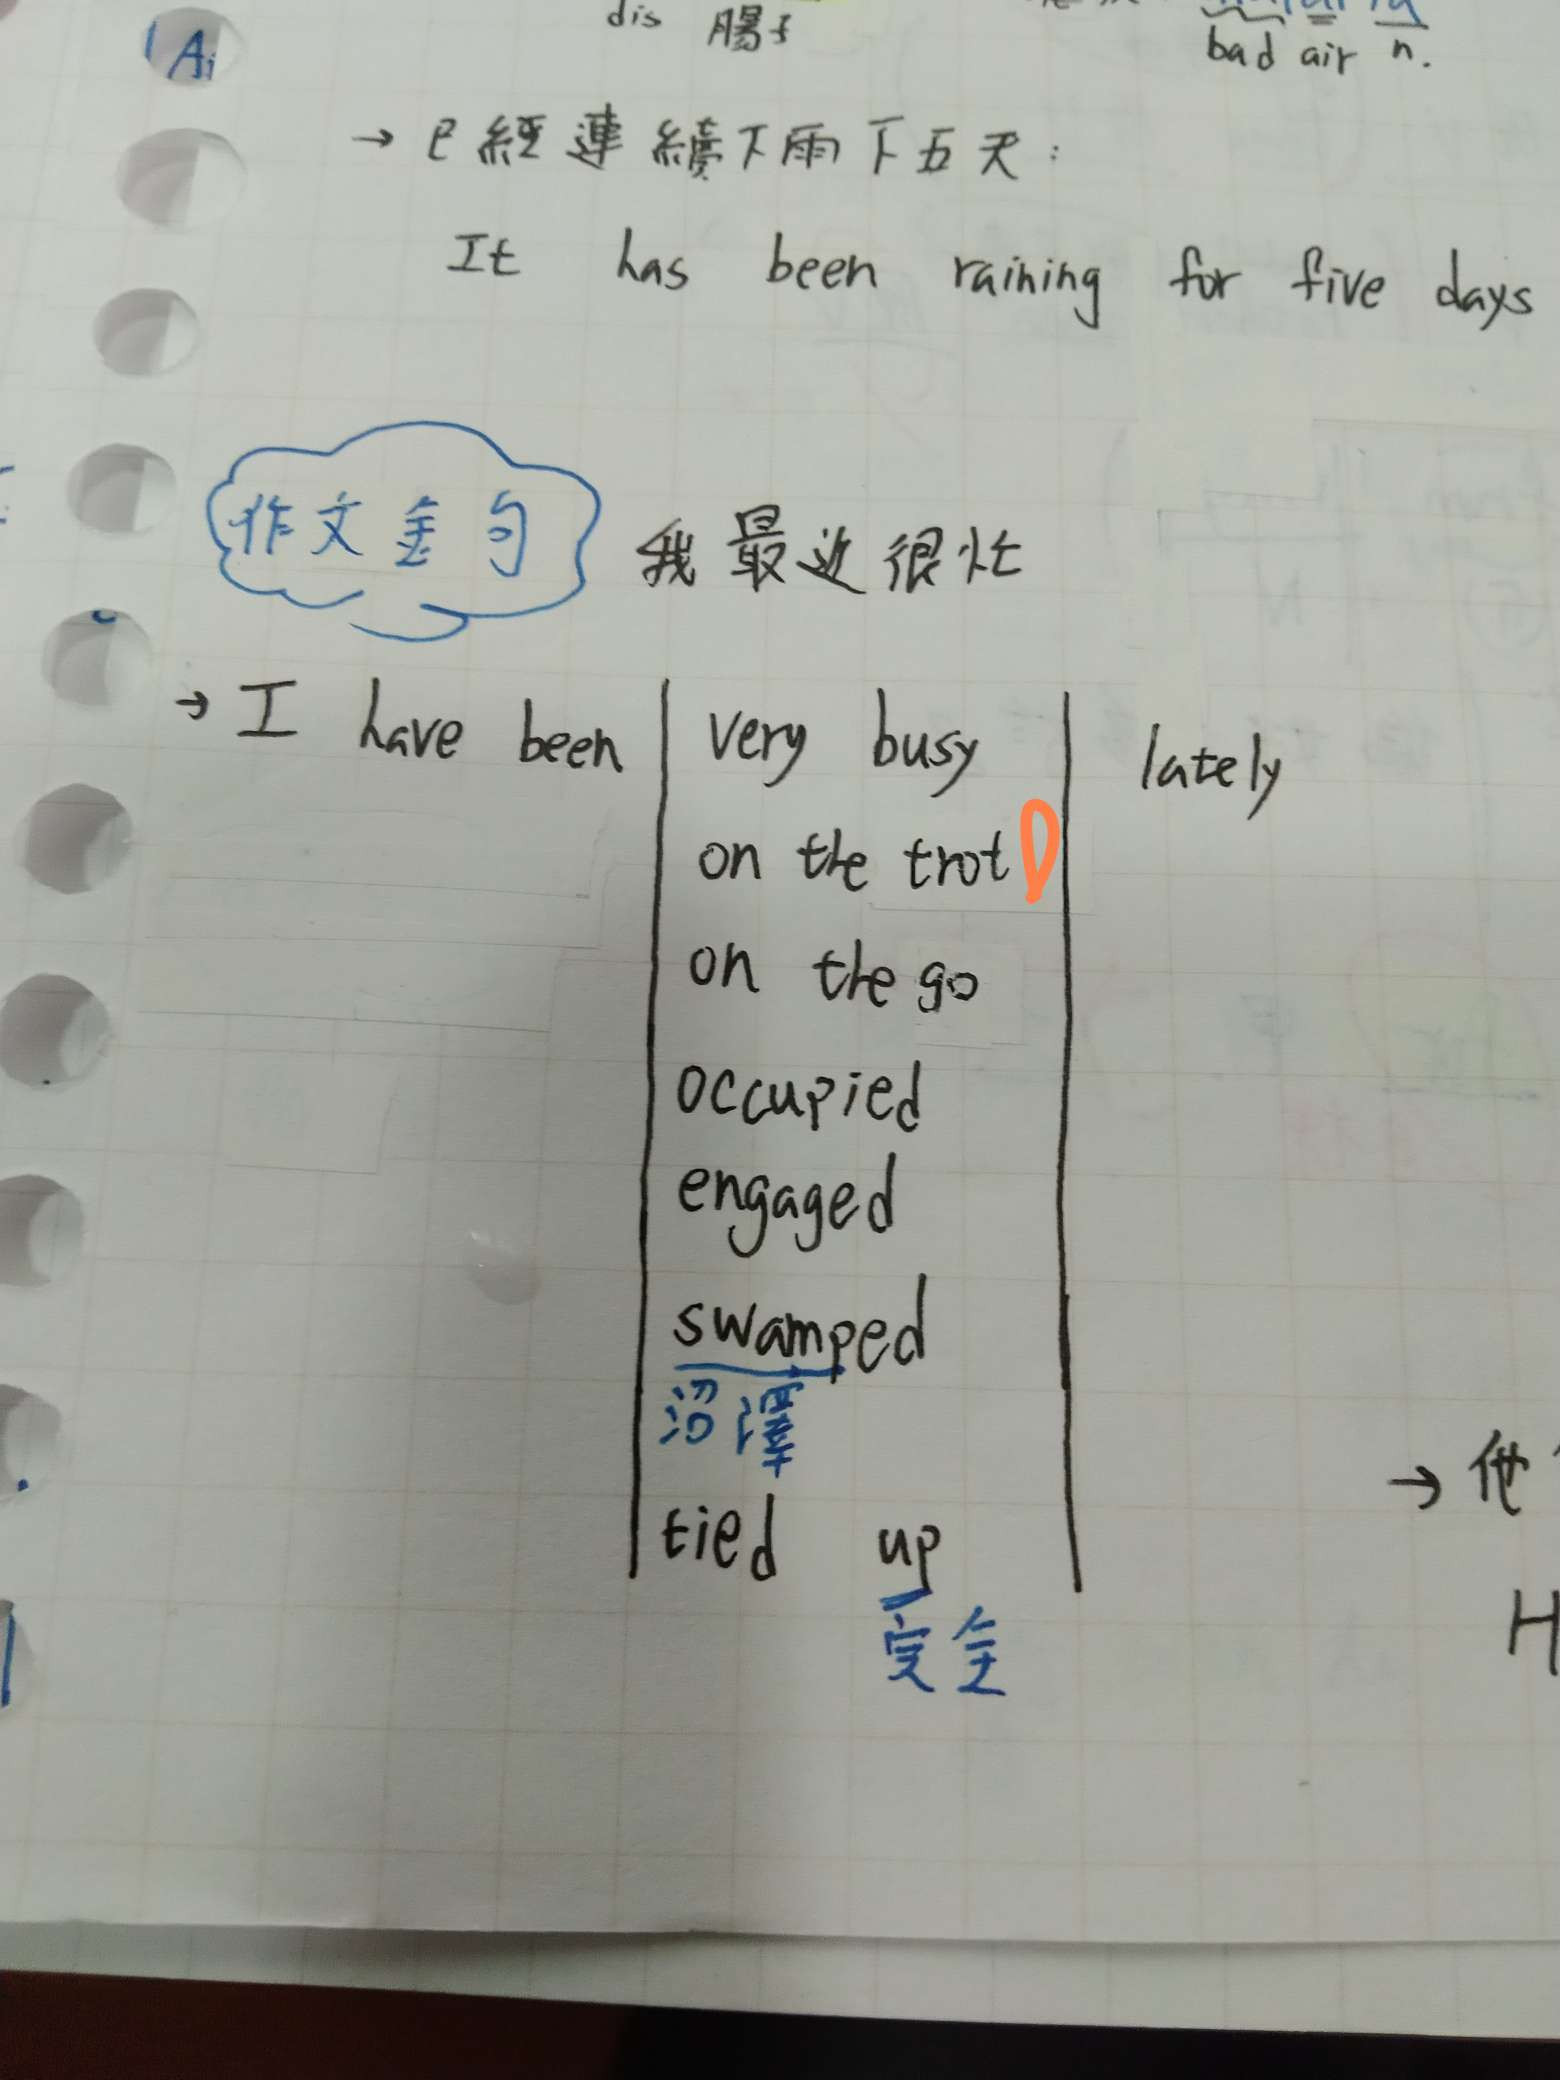 Ai
dis 腸子
bad air n.
→ 已經連續下雨下五天:
It has been raining for five days
作文金句 我最近很忙
→ I have been very busy lately
on the trot
on the go
occupied
engaged
swamped
沼澤
tied up
完全
→ 他
H